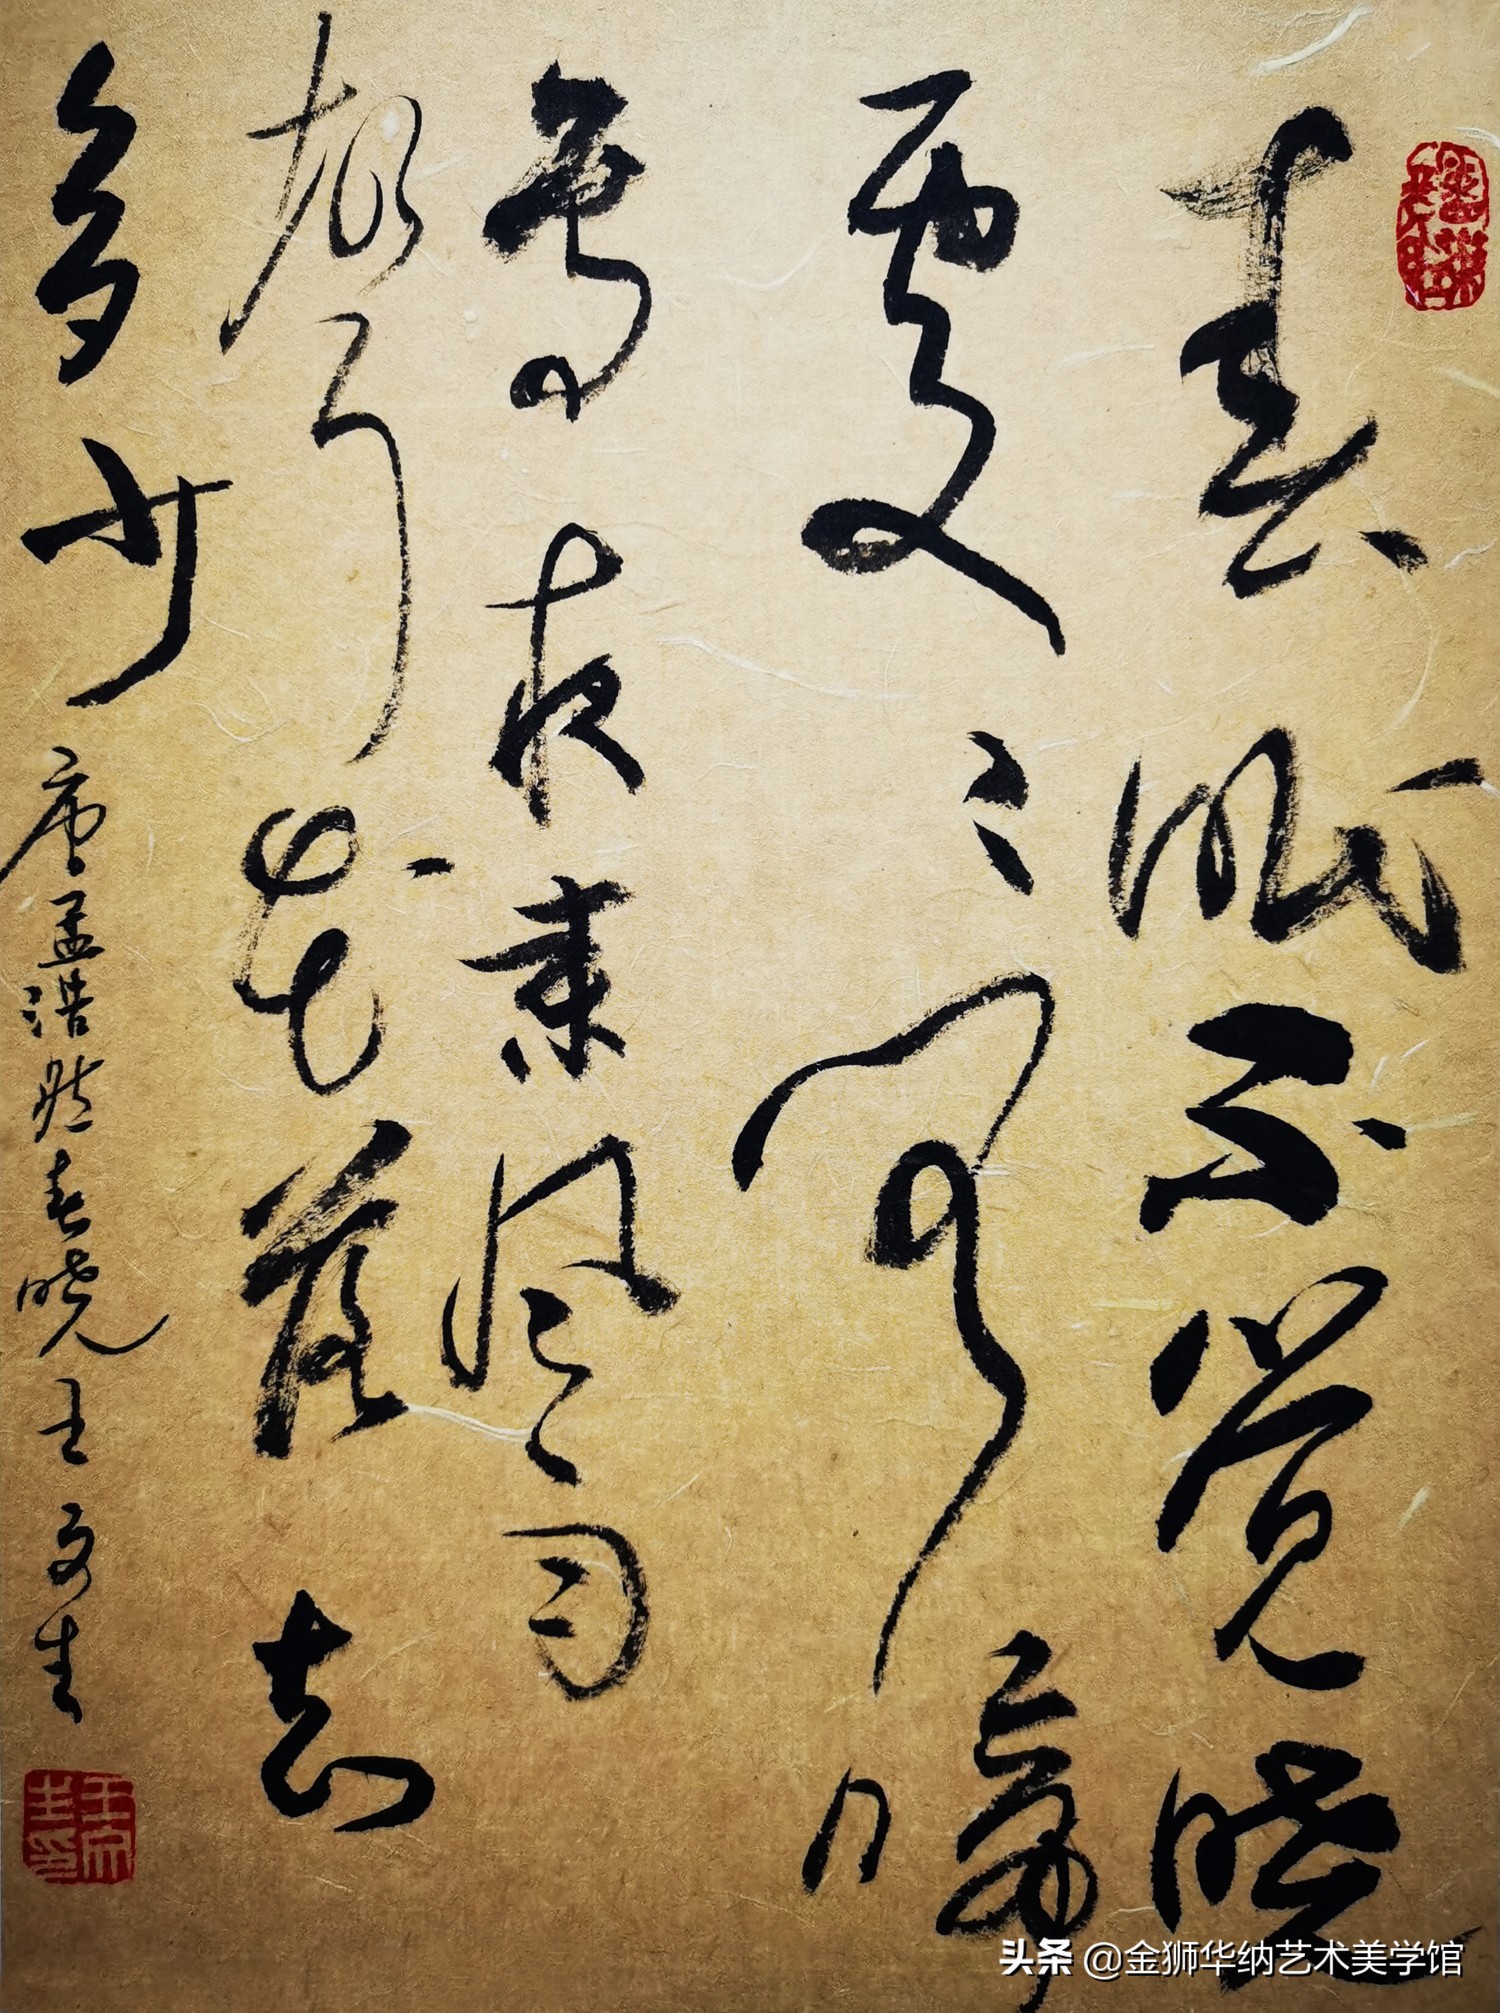 春眠不觉晓
处々闻啼
鸟夜来风雨
声花落知
多少 唐孟浩然春晓 王文生
王文生印
头条 @金狮华纳艺术美学馆